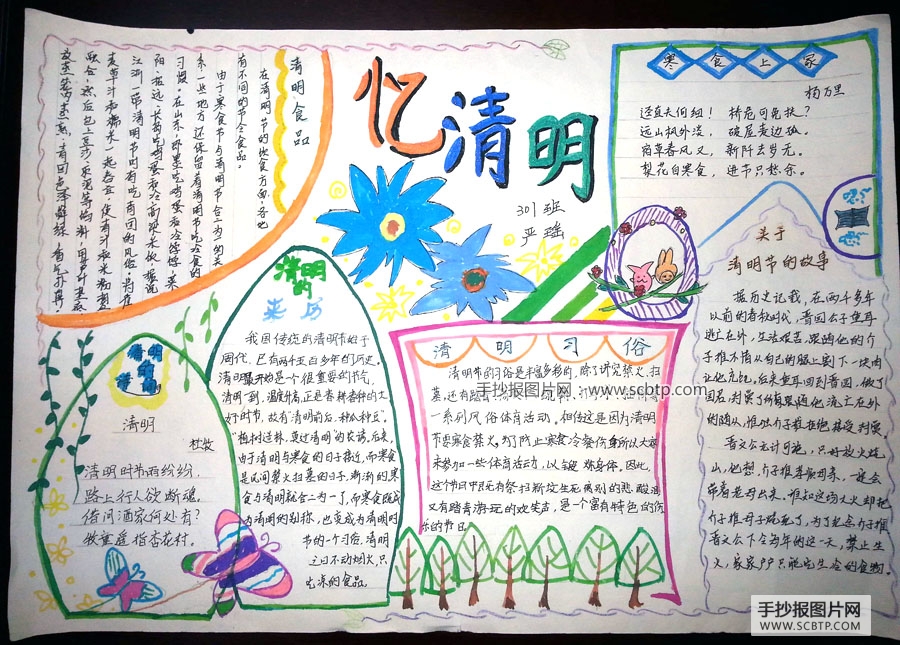 忆清明
301班
严瑶
清明食品
在清明节的饮食方面,各地
有不同的节令食品。
由于寒食节与清明节合二为一的关
系,一些地方还保留着清明节吃冷食的
习惯。在山东,即墨吃鸡蛋和冷饽饽,莱
阳、招远、长岛吃鸡蛋和冷高粱米饭,据说
江浙一带清明节时有吃青团的风俗,将雀
麦草汁和糯米一起舂合,使青汁和米粉相互
融合,然后包上豆沙、枣泥等馅料,用芦叶垫底
放到蒸笼内。蒸熟青团色泽鲜绿,香气扑鼻。
寒食上冢
杨万里
迳直夫何细! 桥危可免扶?
远山枫外淡, 破屋麦边孤。
宿草春风又, 新阡去岁无。
梨花自寒食, 进节只愁余。
关于
清明节的故事
据历史记载,在两千多年
以前的春秋时代,晋国公子重耳
逃亡在外,生活艰苦,跟随他的介
子推不惜从自己的腿上割下一块肉
让他充饥。后来,重耳回到晋国,做了
国君,封赏了所有跟随他流亡在外
的随从,惟独介子推拒绝接受封赏。
晋文公无计可施,只好放火烧
山,他想,介子推孝顺母亲,一定会
带着老母出来。谁知这场大火却把
介子推母子烧死了,为了纪念介子推
晋文公下令每年的这一天,禁止生
火,家家户户只能吃生冷的食物。
清明的
来历
我国传统的清明节始于
周代,已有两千五百多年的历史。
清明最开始是一个很重要的节气,
清明一到,温度升高,正是春耕春种的大
好时节,故有“清明前后,种瓜种豆”。
“植树造林,莫过清明”的农谚。后来,
由于清明与寒食的日子接近,而寒食
是民间禁火扫墓的日子,渐渐的,寒
食与清明就合二为一了,而寒食既成
为清明的别称,也变成为清明时
节的一个习俗,清明
之日不动烟火,只
吃凉的食品
清明习俗
清明节的习俗是丰富多彩的,除了讲究禁火、扫
墓,还有踏
一系列风俗体育活动。相传这是因为清明
节要寒食禁火,为了防止寒食冷餐伤身,所以大家
来参加一些体育活动,以锻炼身体。因此,
这个节日中既有祭扫新坟生死离别的悲酸泪
又有踏青游玩的欢笑声,是一个富有特色的传
统的节日。
清明的诗
清明
杜牧
清明时节雨纷纷,
路上行人欲断魂。
借问酒家何处有?
牧童遥指杏花村。
手抄报图片网 www.scbtp.com
手抄报图片网
WWW.SCBTP.COM